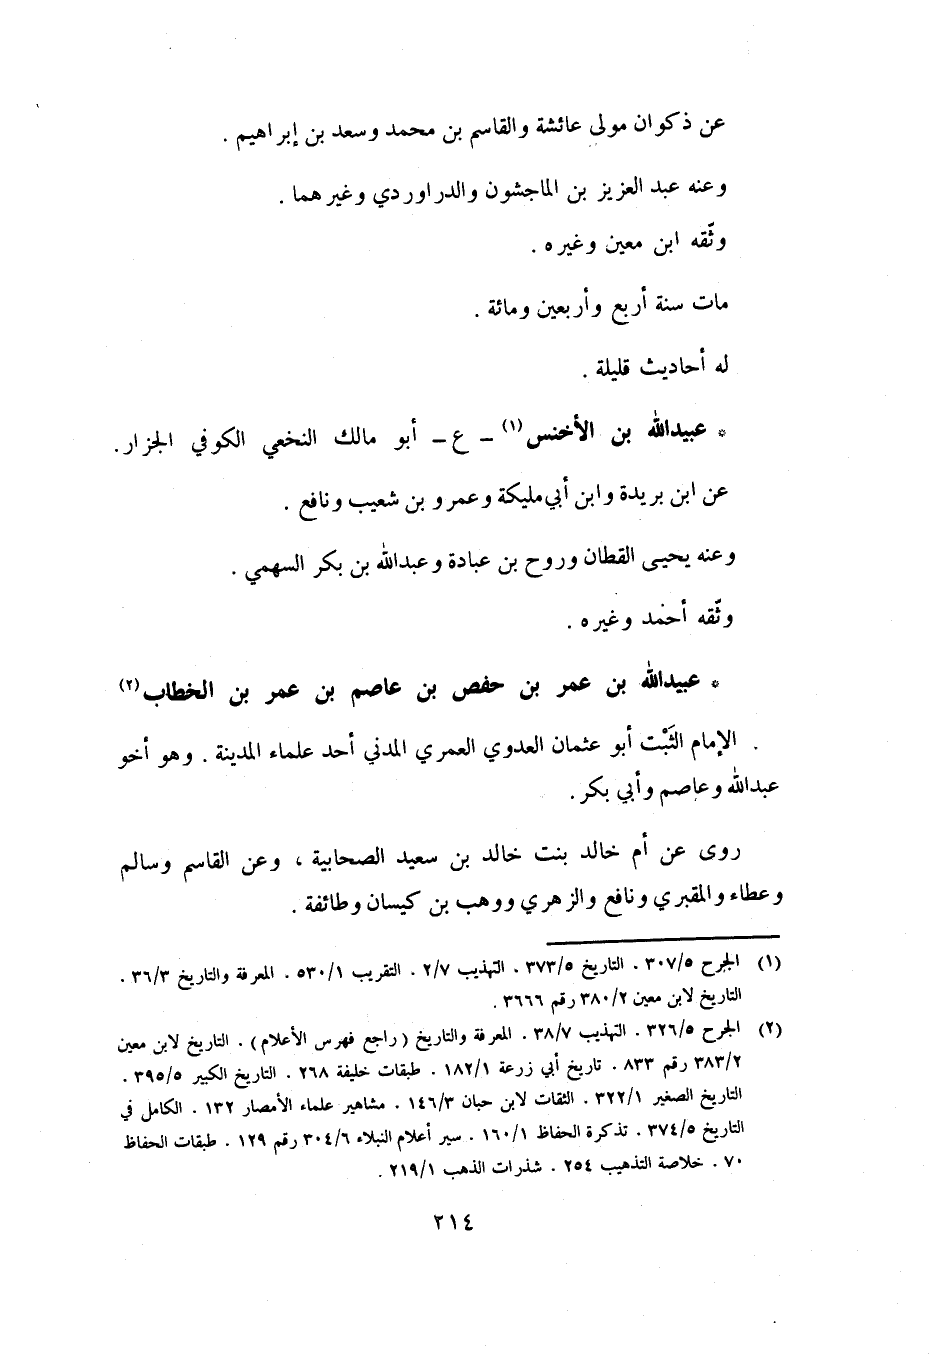 عن ذكوان مولى عائشة والقاسم بن محمد وسعد بن إبراهيم .
وعنه عبد العزيز بن الماجشون والدراوردي وغيرهما .
وثّقه ابن معين وغيره .
مات سنة أربع وأربعين ومائة .
له أحاديث قليلة .
* عبيدالله بن الأخنس(١) ـ ع ـ أبو مالك النخعي الكوفي الجزار .
عن ابن بريدة وابن أبي مليكة وعمرو بن شعيب ونافع .
وعنه يحيى القطان وروح بن عبادة وعبدالله بن بكر السهمي .
وثّقه أحمد وغيره .
* عبيدالله بن عمر بن حفص بن عاصم بن عمر بن الخطاب(٢)
. الإمام الثَبْت أبو عثمان العدوي العمري المدني أحد علماء المدينة . وهو أخو
عبدالله وعاصم وأبي بكر .
روى عن أم خالد بنت خالد بن سعيد الصحابية ، وعن القاسم وسالم
وعطاء والمقبري ونافع والزهري ووهب بن كيسان وطائفة .
(١) الجرح ٣٠٧/٥ . التاريخ ٣٧٣/٥ . التهذيب ٢/٧ . التقريب ٥٣٠/١ . المعرفة والتاريخ ٣٦/٣ .
التاريخ لابن معين ٣٨٠/٢ رقم ٣٦٦٦ .
(٢) الجرح ٣٢٦/٥ . التهذيب ٣٨/٧ . المعرفة والتاريخ ( راجع فهرس الأعلام ) . التاريخ لابن معين
٣٨٣/٢ رقم ٨٣٣ . تاريخ أبي زرعة ١٨٢/١ . طبقات خليفة ٢٦٨ . التاريخ الكبير ٣٩٥/٥ .
التاريخ الصغير ٣٢٢/١ . الثقات لابن حبان ١٤٦/٣ . مشاهير علماء الأمصار ١٣٢ . الكامل في
التاريخ ٣٧٤/٥ . تذكرة الحفاظ ١٦٠/١ . سير أعلام النبلاء ٣٠٤/٦ رقم ١٢٩ . طبقات الحفاظ
٧٠ . خلاصة التذهيب ٢٥٤ . شذرات الذهب ٢١٩/١ .
٢١٤